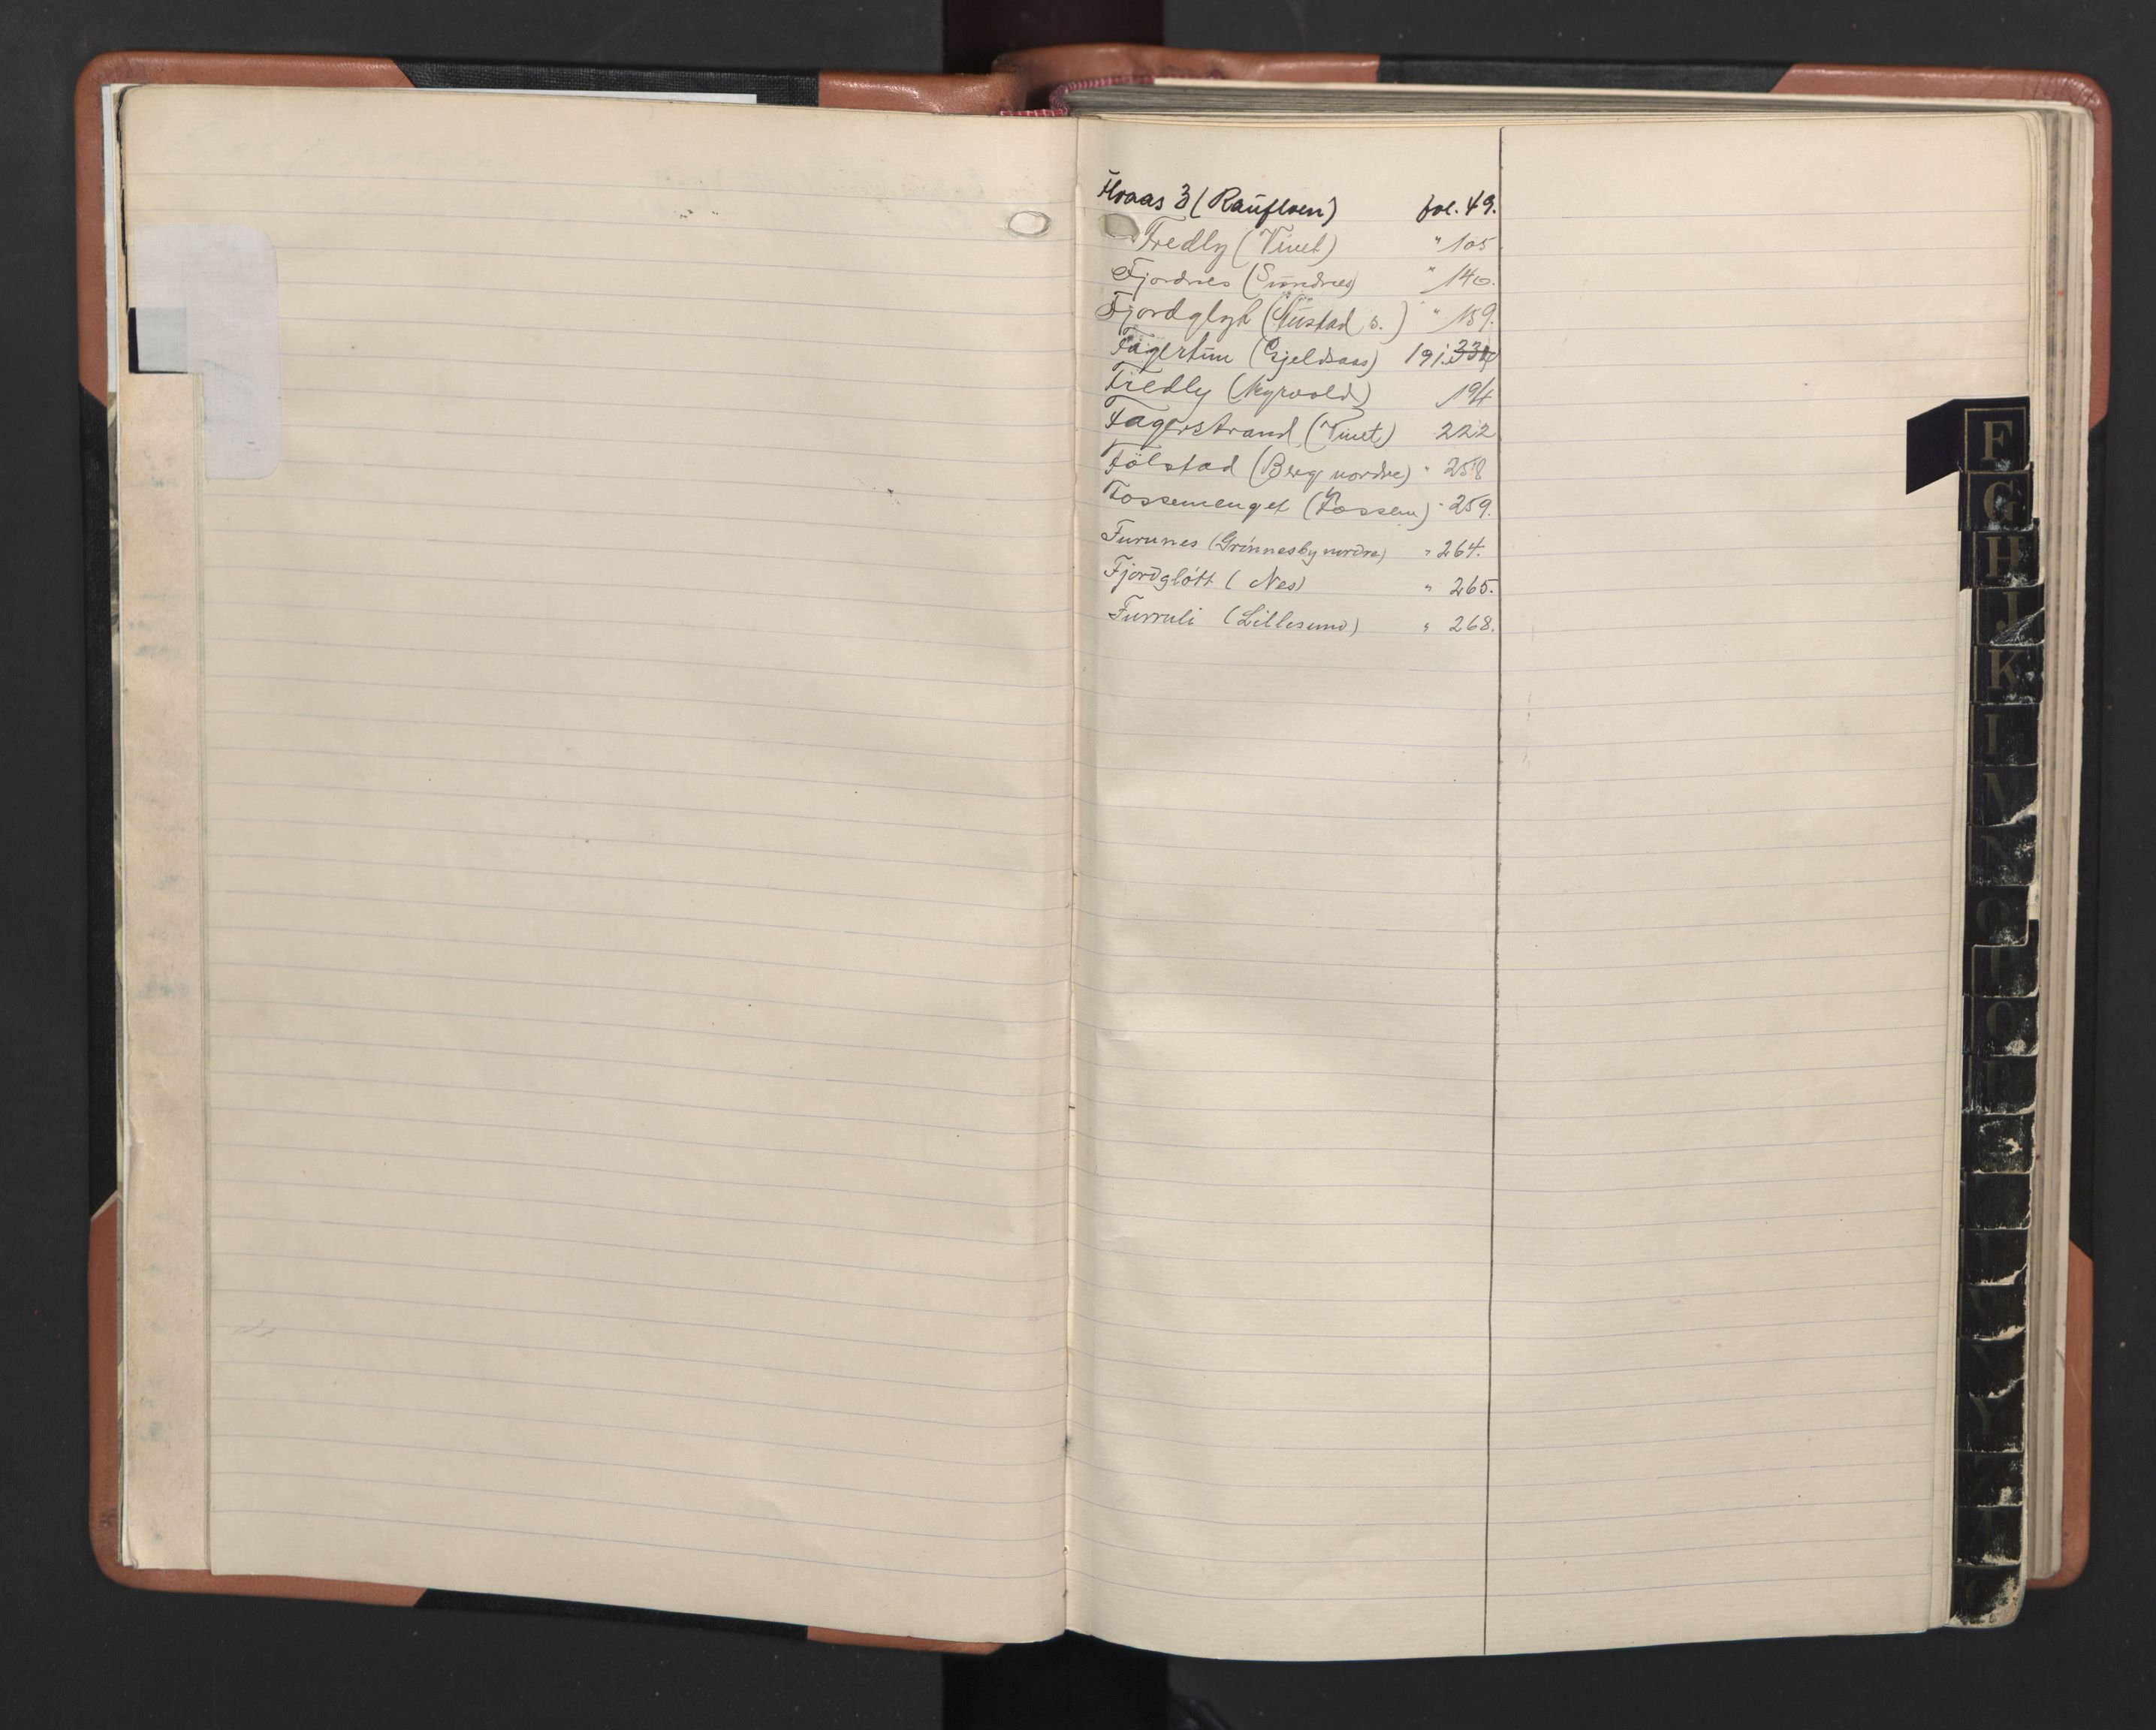 Fraas 3 (Raufloen) fol. 49.
Fredly (Vinet) " 105
Fjordnes (Sundnes) " 140.
Fjordgløt (Nustad s.) " 159.
Fagertun (Gjeldsaas) 191. 334
Fredly (Myrvold) 194
Fagerstrand (Vinet) 222
Fölstad (Berg nordre) " 258
Fossemenget (Fossem) " 259.
Furunes (Grönnesby nordre) " 264.
Fjordglött (Nes) " 265.
Furruli (Lillesund) " 268.
F
G
H
J
K